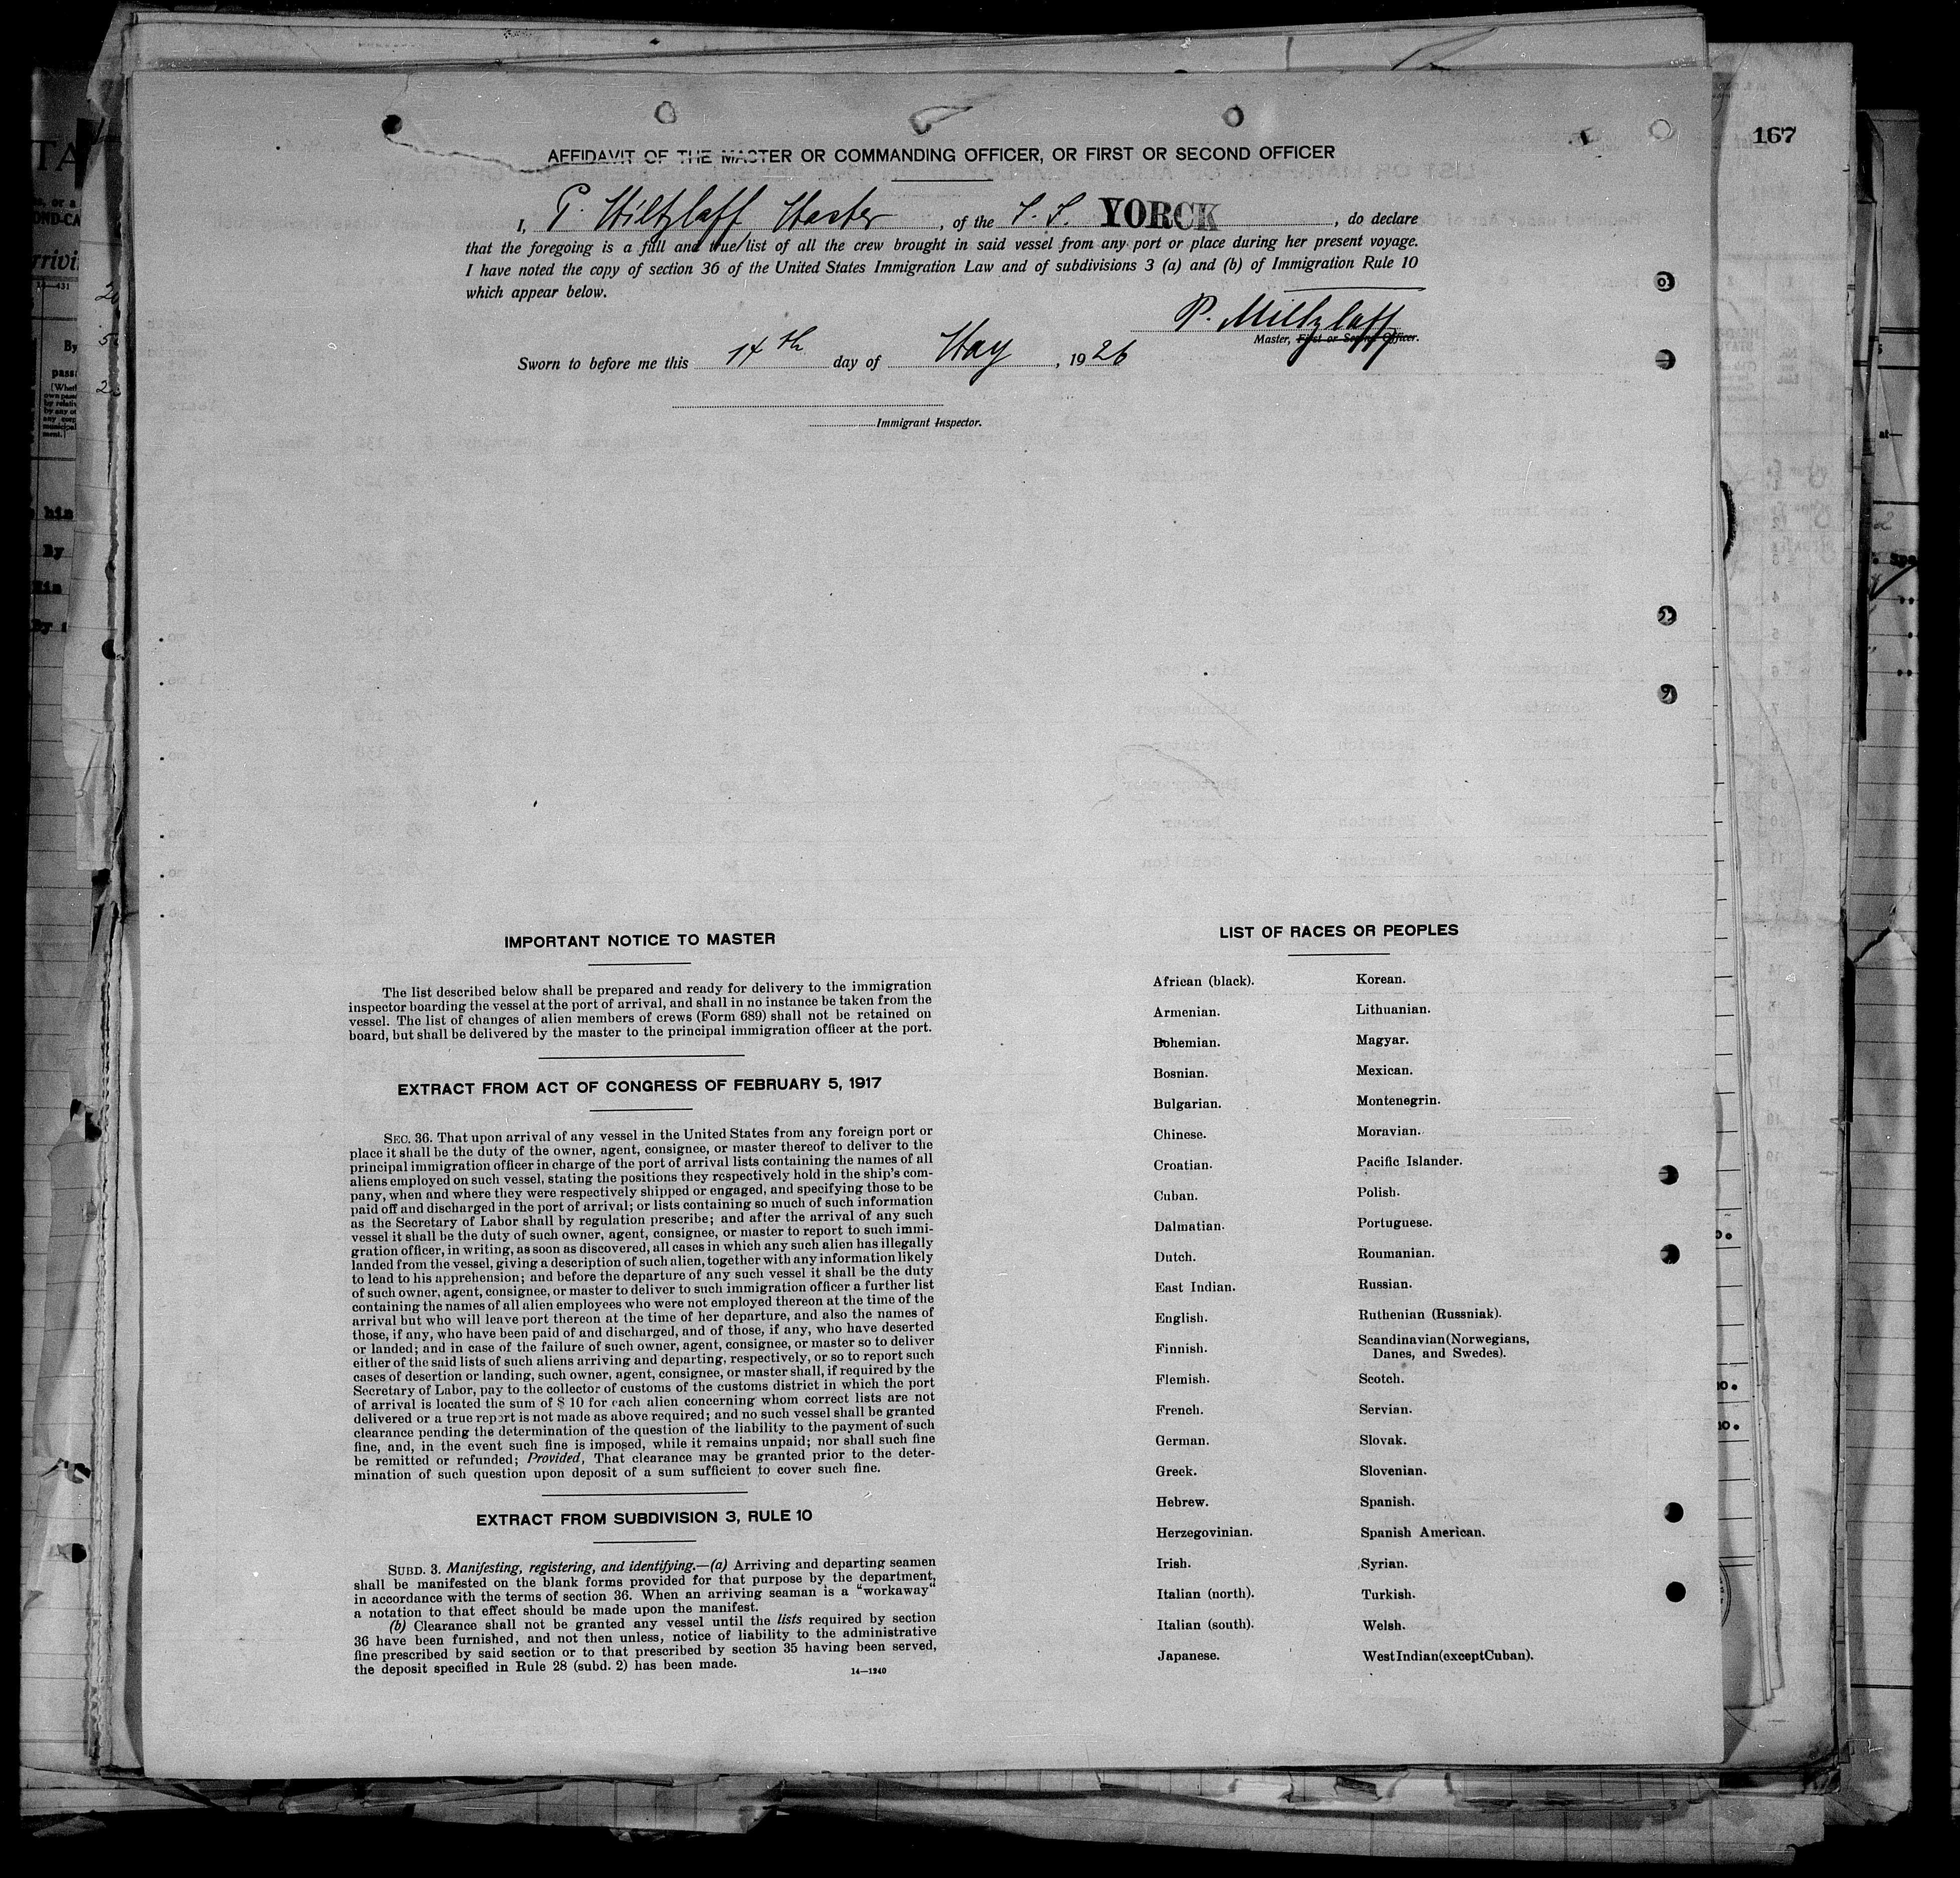 167
AFFIDAVIT OF THE MASTER OR COMMANDING OFFICER, OR FIRST OR SECOND OFFICER
I, P. Miltzlaff Master, of the S. S. YORCK, do declare
that the foregoing is a full and true list of all the crew brought in said vessel from any port or place during her present voyage.
I have noted the copy of section 36 of the United States Immigration Law and of subdivisions 3 (a) and (b) of Immigration Rule 10
which appear below.
P. Miltzlaff
Master, First or Second Officer.
Sworn to before me this 14th day of May, 1926
Immigrant Inspector.
IMPORTANT NOTICE TO MASTER
The list described below shall be prepared and ready for delivery to the immigration
inspector boarding the vessel at the port of arrival, and shall in no instance be taken from the
vessel. The list of changes of alien members of crews (Form 689) shall not be retained on
board, but shall be delivered by the master to the principal immigration officer at the port.
EXTRACT FROM ACT OF CONGRESS OF FEBRUARY 5, 1917
SEC. 36. That upon arrival of any vessel in the United States from any foreign port or
place it shall be the duty of the owner, agent, consignee, or master thereof to deliver to the
principal immigration officer in charge of the port of arrival lists containing the names of all
aliens employed on such vessel, stating the positions they respectively hold in the ship's com-
pany, when and where they were respectively shipped or engaged, and specifying those to be
paid off and discharged in the port of arrival; or lists containing so much of such information
as the Secretary of Labor shall by regulation prescribe; and after the arrival of any such
vessel it shall be the duty of such owner, agent, consignee, or master to report to such immi-
gration officer, in writing, as soon as discovered, all cases in which any such alien has illegally
landed from the vessel, giving a description of such alien, together with any information likely
to lead to his apprehension; and before the departure of any such vessel it shall be the duty
of such owner, agent, consignee, or master to deliver to such immigration officer a further list
containing the names of all alien employees who were not employed thereon at the time of the
arrival but who will leave port thereon at the time of her departure, and also the names of
those, if any, who have been paid of and discharged, and of those, if any, who have deserted
or landed; and in case of the failure of such owner, agent, consignee, or master so to deliver
either of the said lists of such aliens arriving and departing, respectively, or so to report such
cases of desertion or landing, such owner, agent, consignee, or master shall, if required by the
Secretary of Labor, pay to the collector of customs of the customs district in which the port
of arrival is located the sum of $ 10 for each alien concerning whom correct lists are not
delivered or a true report is not made as above required; and no such vessel shall be granted
clearance pending the determination of the question of the liability to the payment of such
fine, and, in the event such fine is imposed, while it remains unpaid; nor shall such fine
be remitted or refunded; Provided, That clearance may be granted prior to the deter-
mination of such question upon deposit of a sum sufficient to cover such fine.
EXTRACT FROM SUBDIVISION 3, RULE 10
SUBD. 3. Manifesting, registering, and identifying.—(a) Arriving and departing seamen
shall be manifested on the blank forms provided for that purpose by the department,
in accordance with the terms of section 36. When an arriving seaman is a "workaway"
a notation to that effect should be made upon the manifest.
(b) Clearance shall not be granted any vessel until the lists required by section
36 have been furnished, and not then unless, notice of liability to the administrative
fine prescribed by said section or to that prescribed by section 35 having been served,
the deposit specified in Rule 28 (subd. 2) has been made.
14—1240
LIST OF RACES OR PEOPLES
African (black).
Armenian.
Bohemian.
Bosnian.
Bulgarian.
Chinese.
Croatian.
Cuban.
Dalmatian.
Dutch.
East Indian.
English.
Finnish.
Flemish.
French.
German.
Greek.
Hebrew.
Herzegovinian.
Irish.
Italian (north).
Italian (south).
Japanese.
Korean.
Lithuanian.
Magyar.
Mexican.
Montenegrin.
Moravian.
Pacific Islander.
Polish.
Portuguese.
Roumanian.
Russian.
Ruthenian (Russniak).
Scandinavian(Norwegians,
Danes, and Swedes).
Scotch.
Servian.
Slovak.
Slovenian.
Spanish.
Spanish American.
Syrian.
Turkish.
Welsh.
WestIndian(exceptCuban).